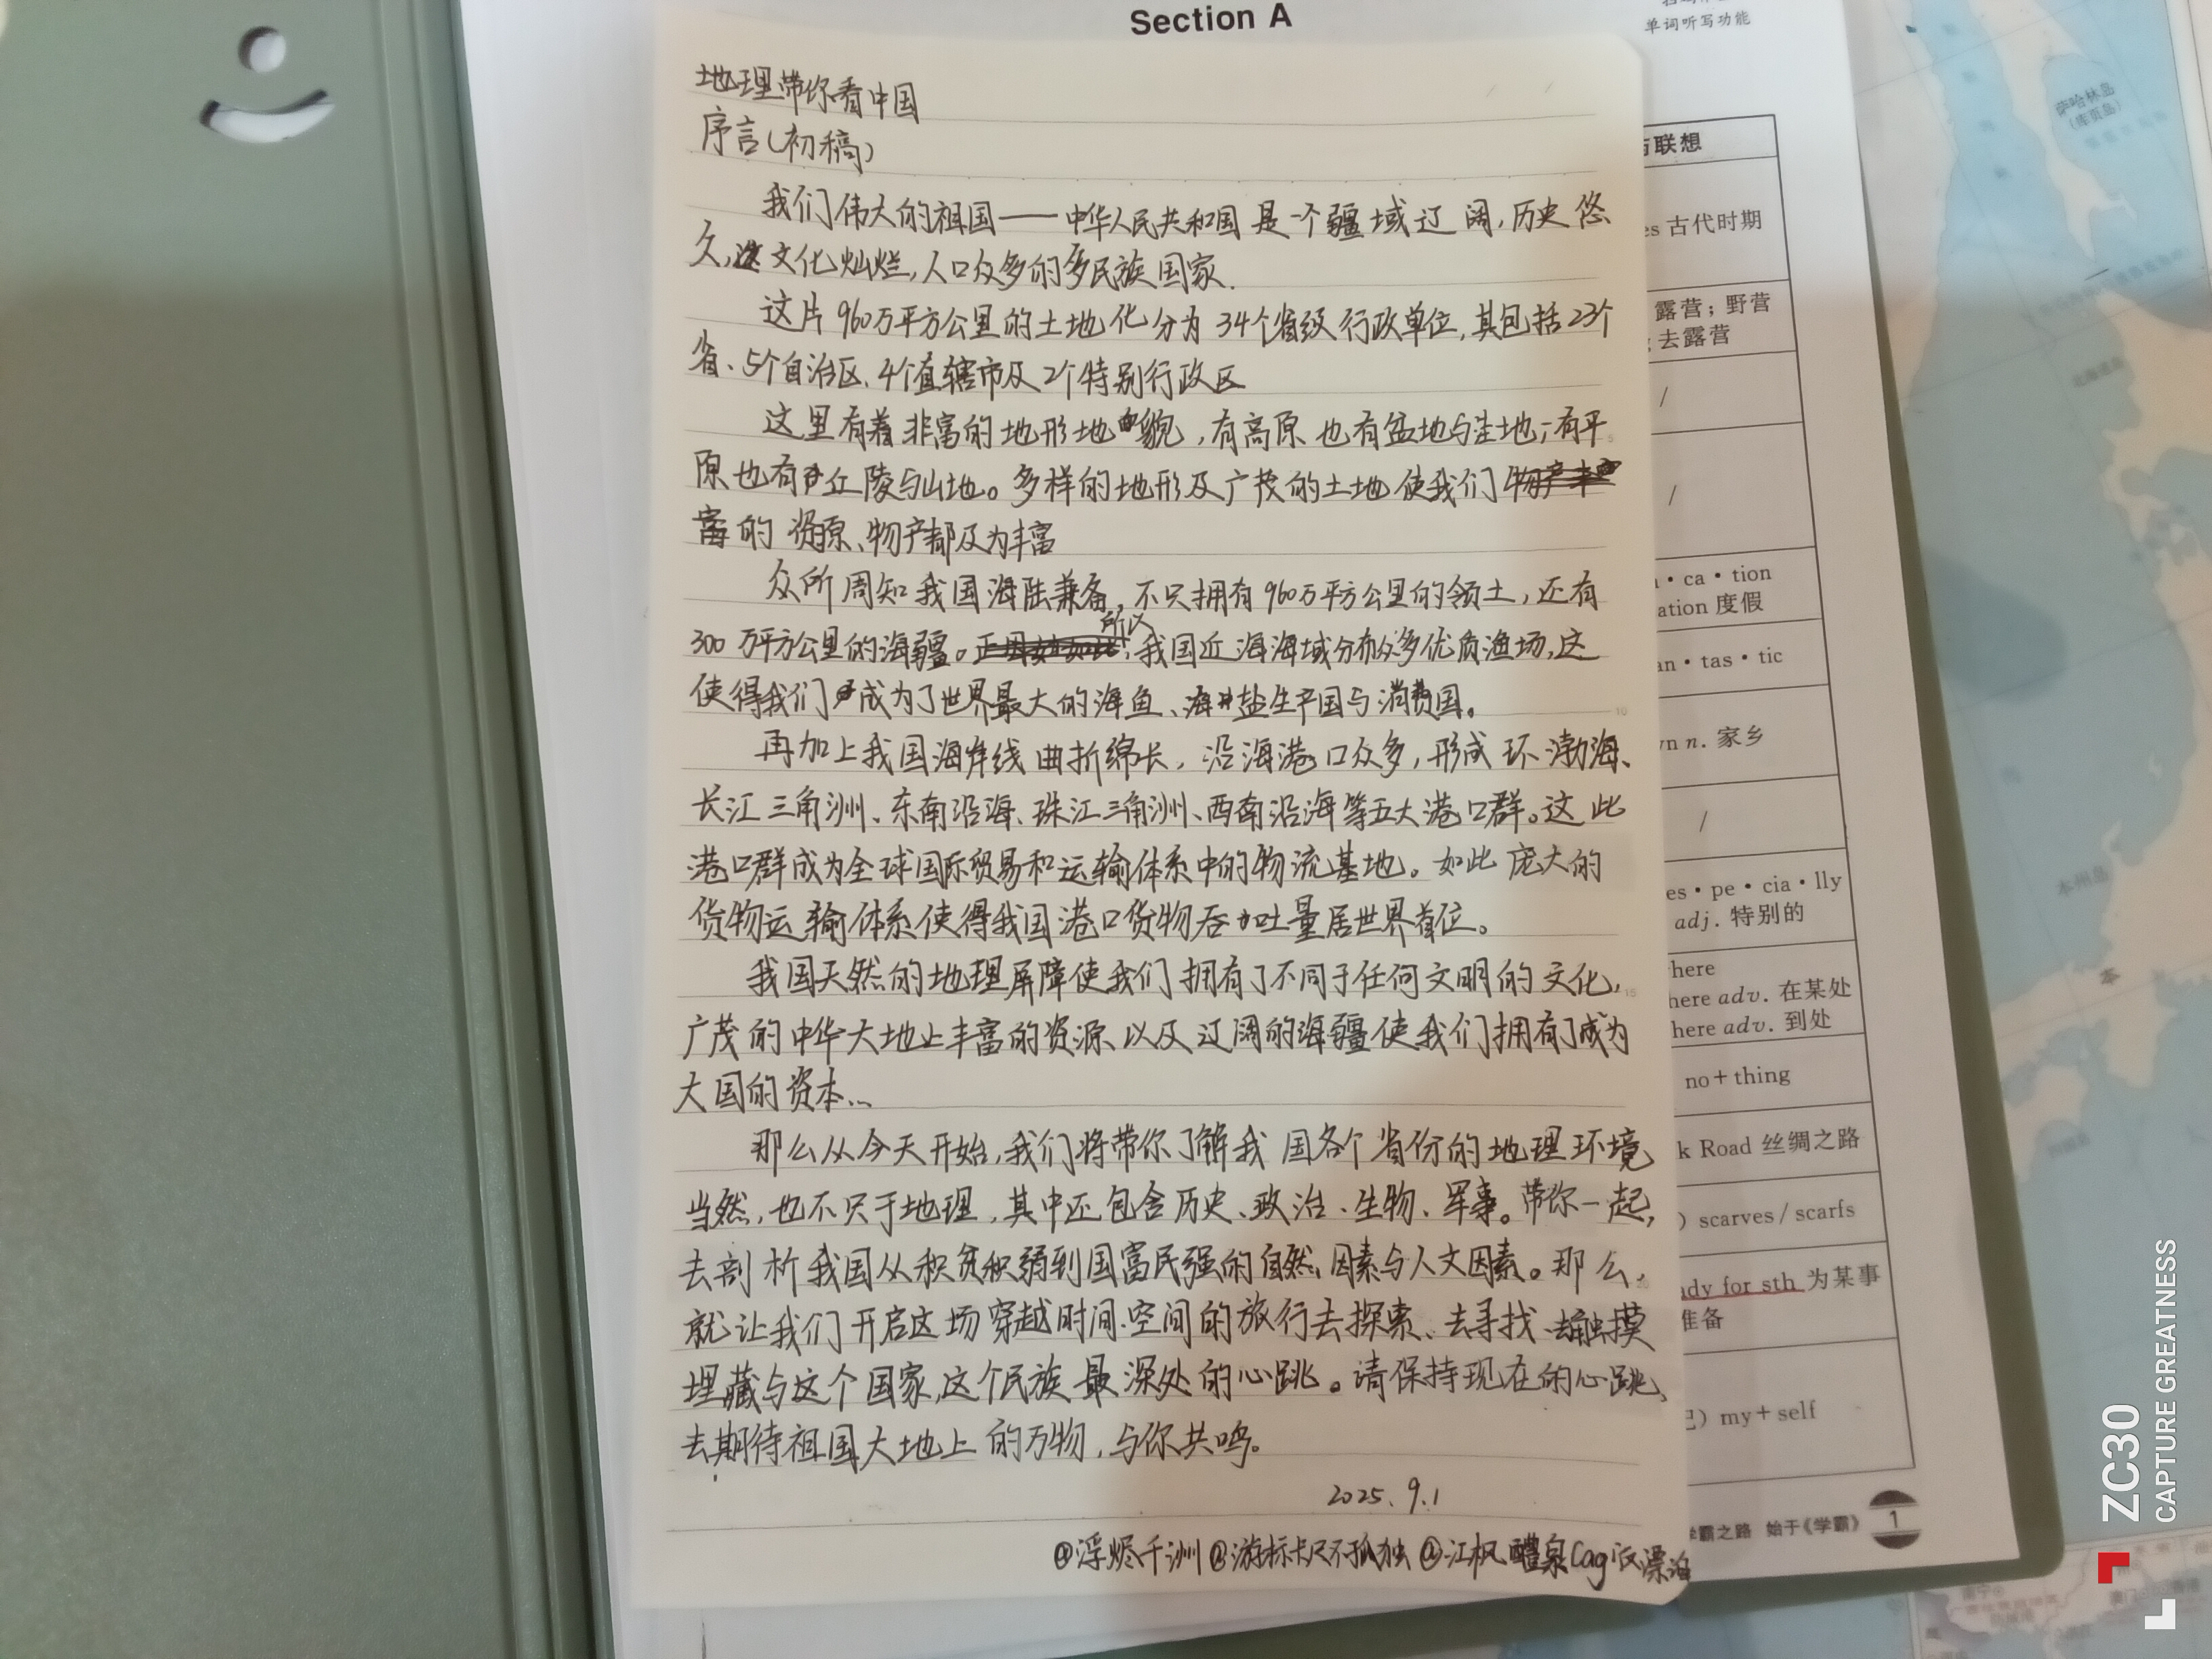 Section A
单词听写功能
地理带你看中国
序言(初稿)
我们伟大的祖国——中华人民共和国是一个疆域辽阔,历史悠
久,文化灿烂,人口众多的多民族国家.
这片960万平方公里的土地化分为34个省级行政单位,其包括23个
省、5个自治区、4个直辖市及2个特别行政区
这里有着非富的地形地貌,有高原也有盆地与洼地;有平
原也有丘陵与山地。多样的地形及广茂的土地使我们
的资源、物产都及为丰富
众所周知我国海陆兼备,不只拥有960万平方公里的领土,还有
300万平方公里的海疆。所以我国近海海域分布众多优质渔场,这
使得我们成为了世界最大的海鱼、海盐生产国与消费国。
再加上我国海岸线曲折绵长,沿海港口众多,形成环渤海、
长江三角洲、东南沿海、珠江三角洲、西南沿海等五大港口群。这此
港口群成为全球国际贸易和运输体系中的物流基地。如此庞大的
货物运输体系使得我国港口货物吞吐量居世界首位。
我国天然的地理屏障使我们拥有了不同于任何文明的文化,
广茂的中华大地上丰富的资源以及辽阔的海疆使我们拥有了成为
大国的资本...
那么从今天开始,我们将带你了解我国各个省份的地理环境
当然,也不只于地理,其中还包含历史、政治、生物、军事。带你一起,
去剖析我国从积贫积弱到国富民强的自然因素与人文因素。那么,
就让我们开启这场穿越时间、空间的旅行去探索、去寻找、去触摸
埋藏与这个国家,这个民族最深处的心跳。请保持现在的心跳,
去期待祖国大地上的万物,与你共鸣。
2025.9.1
@浮烬千洲@游标卡尺不孤独@江枫醴泉
与联想
es 古代时期
露营;野营
去露营
/
/
ca·tion
ation 度假
an·tas·tic
n. 家乡
/
es·pe·cia·lly
adj. 特别的
here
here adv. 在某处
here adv. 到处
no+thing
k Road 丝绸之路
) scarves/scarfs
ady for sth 为某事
准备
己) my+self
学霸之路 始于《学霸》
1
萨哈林岛
(库页岛)
本州岛
本
ZC30
CAPTURE GREATNESS